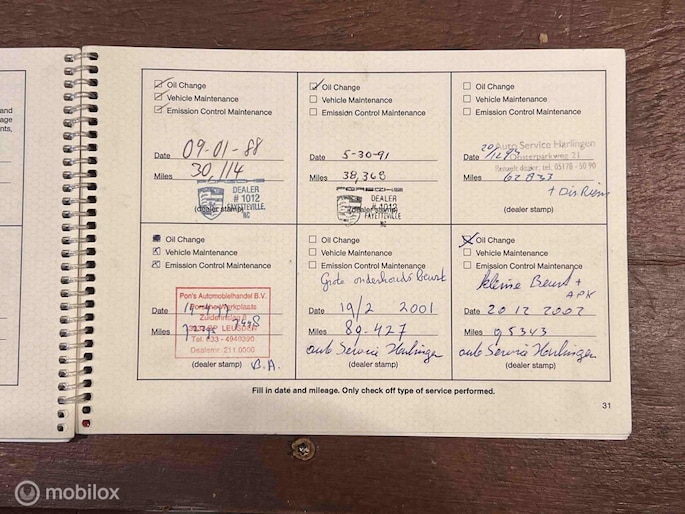 and
age
nts,
Oil Change
Vehicle Maintenance
Emission Control Maintenance
Date 09-01-88
Miles 30,114
DEALER
# 1012
FAYETTEVILLE,
NC
(dealer stamp)
Oil Change
Vehicle Maintenance
Emission Control Maintenance
Date 5-30-91
Miles 38,365
PORSCHE
DEALER
# 1012
FAYETTEVILLE
NC
(dealer stamp)
Oil Change
Vehicle Maintenance
Emission Control Maintenance
Auto Service Harlingen
Oosterparkweg 21
Date
tel. 05178 - 50 90
Miles
+ Dis Riem
(dealer stamp)
Oil Change
Vehicle Maintenance
Emission Control Maintenance
Pon's Automobielhandel B.V.
Date
Zuiderinslag 8
Miles
LEUSDEN
Tel. 033 - 4949390
Dealernr. 211.0000
(dealer stamp) B.A.
Oil Change
Vehicle Maintenance
Emission Control Maintenance
Grote onderhouds beurt
Date 19/2 2001
Miles 89-427
auto Service Harlingen
(dealer stamp)
Oil Change
Vehicle Maintenance
Emission Control Maintenance
kleine Beurt +
APK
Date 20 12 2002
Miles 95343
auto Service Harlingen
(dealer stamp)
Fill in date and mileage. Only check off type of service performed.
31
mobilox